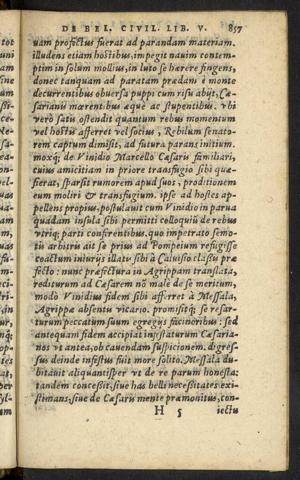 DE BEL. CIVIL. LIB. V. 857
uam profectus fuerat ad parandam materiam.
illudens etiam hostibus, impegit nauim contem-
ptim in solum mollius, in luto se hærere fingens,
donec tanquam ad paratam prædam è monte
decurrentibus obuersa puppi cum risu abijt, Cæ-
sarianis mœrentibus æque ac stupentibus. Vbi
verò satis ostendit quantum rebus momentum
vel hostis afferret vel socius, Rebilum senato-
rem captum dimisit, ad futura parans initium.
moxq; de Vinidio Marcello Cæsaris familiari,
cuius amicitiam in priore transfugio sibi quæ-
sierat, sparsit rumorem apud suos, proditionem
eum moliri & transfugium. ipse ad hostes ap-
pellens propius, postulauit cum Vinidio in parua
quadam insula sibi permitti colloquiū de rebus
vtriq; parti conferentibus. quo impetrato semo-
tis arbitris ait se prius ad Pompeium refugisse
coactum iniurijs illatis sibi à Caluisio classis præ
fecto: nunc præfectura in Agrippam translata,
rediturum ad Cæsarem nō malè de se meritum,
modo Vinidius fidem sibi afferret à Messala,
Agrippæ absentis vicario. promisitq; se resar-
turum peccatum suum egregijs facinoribus: sed
antequam fidem accipiat infestaturum Cæsaria-
nos vt antea, ob cauendam suspicionem. digres-
sus deinde infestus fuit more solito. Messala du-
bitauit aliquantisper vt de re parum honesta:
tandem concessit, siue has belli necessitates exi-
stimans, siue de Cæsaris mente præmonitus, con-
H 5 iectu